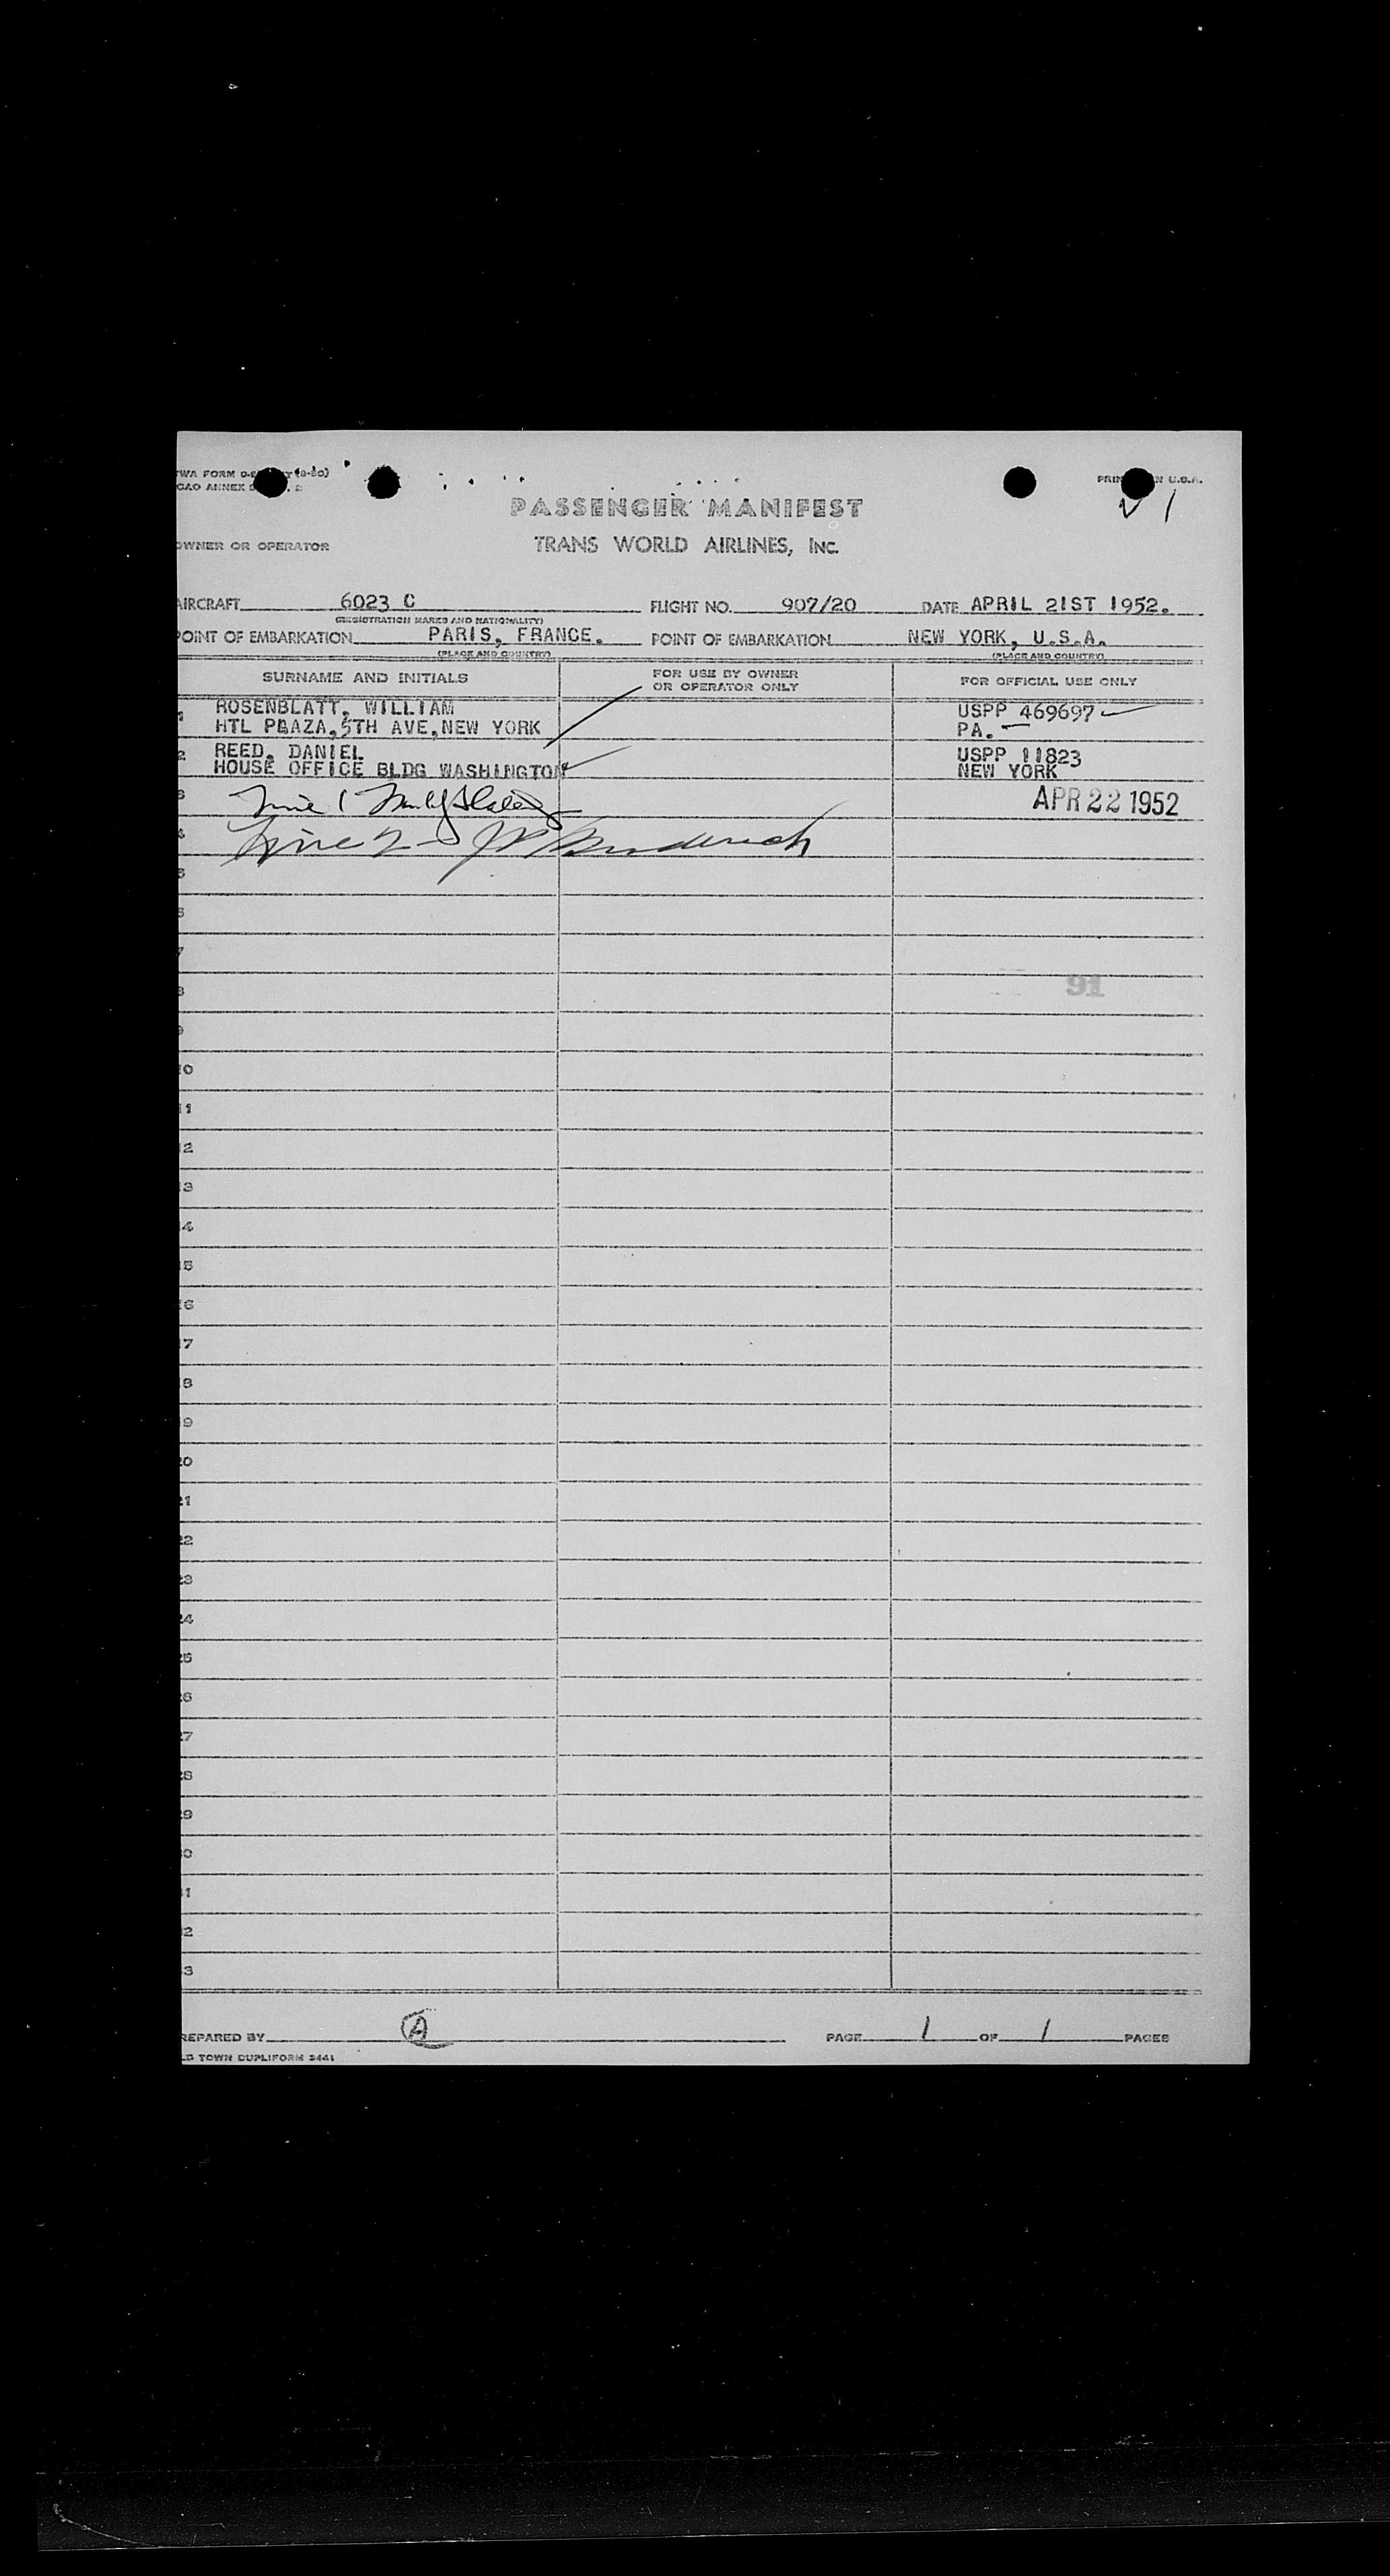 TWA FORM (8-50)
PRIN N U.S.A.
CAO ANNEX 2
PASSENGER MANIFEST
OWNER OR OPERATOR
TRANS WORLD AIRLINES, INC.
AIRCRAFT 6023 C FLIGHT NO. 907/20 DATE APRIL 21ST 1952.
(REGISTRATION MARKS AND NATIONALITY)
POINT OF EMBARKATION PARIS, FRANCE. POINT OF EMBARKATION NEW YORK, U.S.A.
(PLACE AND COUNTRY) (PLACE AND COUNTRY)
SURNAME AND INITIALS FOR USE BY OWNER OR OPERATOR ONLY FOR OFFICIAL USE ONLY
1 ROSENBLATT, WILLIAM USPP 469697
HTL PLAZA,5TH AVE,NEW YORK PA.
2 REED, DANIEL USPP 11823
HOUSE OFFICE BLDG WASHINGTON NEW YORK
3 Line 1 APR 22 1952
4 Line 2 -
5
6
7
8 91
9
10
11
12
13
14
15
16
17
18
19
20
21
22
23
24
25
26
27
28
29
30
31
32
33
REPARED BY A PAGE 1 OF 1 PAGES
LD TOWN DUPLIFORM 3441